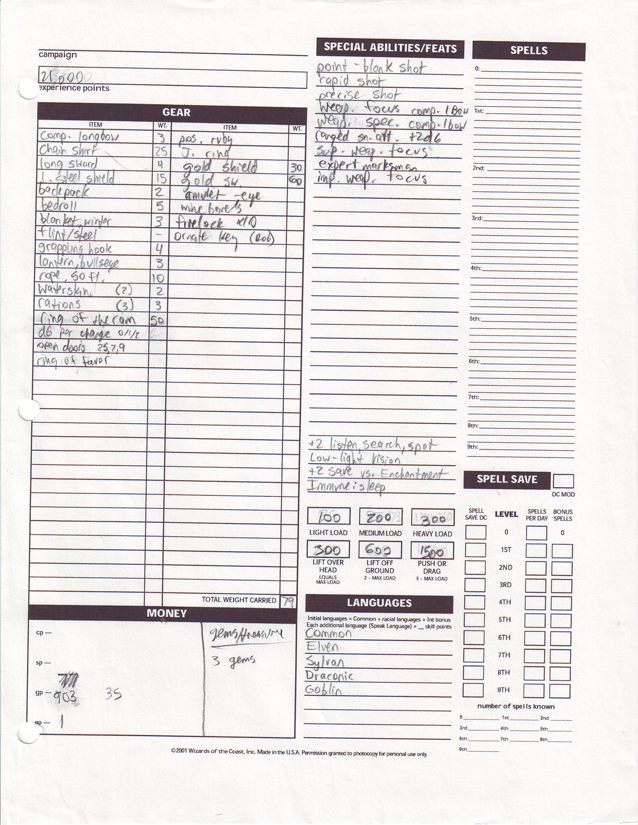 campaign
21,000
experience points
GEAR
ITEM WT. ITEM WT.
Comp. longbow 3 pos. ruby
Chain shirt 25 J. ring
long sword 4 gold shield 30
l. steel shield 15 gold sw. 60
backpack 2 amulet - eye
bedroll 5 wine barrels
blanket, winter 3 firelock
flint/steel - ornate key
grappling hook 4
lantern, bullseye 3
rope, 50 ft. 10
waterskin (2) 2
rations (3) 3
ring of the ram 50
d6 per charge 0/1/2
open doors 25,7,9
ring of favor
TOTAL WEIGHT CARRIED 79
MONEY
cp —
sp —
gp — 903 35
pp — 1
gems/treasure
3 gems
SPECIAL ABILITIES/FEATS
point-blank shot
rapid shot
precise shot
Weap. focus comp. lbow
weap. spec. comp. lbow
ranged sn. att. +2d6
sup. weap. focus
expert marksman
imp. weap. focus
+2 listen, search, spot
Low-light vision
+2 save vs. Enchantment
Immune: sleep
100 200 300
LIGHT LOAD MEDIUM LOAD HEAVY LOAD
300 600 1500
LIFT OVER HEAD LIFT OFF GROUND PUSH OR DRAG
EQUALS MAX LOAD 2 × MAX LOAD 5 × MAX LOAD
LANGUAGES
Initial languages = Common + racial languages + Int bonus
Each additional language (Speak Language) = __ skill points
Common
Elven
Sylvan
Draconic
Goblin
SPELLS
0:
1st:
2nd:
3rd:
4th:
5th:
6th:
7th:
8th:
9th:
SPELL SAVE
DC MOD
SPELL SAVE DC LEVEL SPELLS PER DAY BONUS SPELLS
0 0
1ST
2ND
3RD
4TH
5TH
6TH
7TH
8TH
9TH
number of spells known
0 1st 2nd
3rd 4th 5th
6th 7th 8th
9th
©2001 Wizards of the Coast, Inc. Made in the U.S.A. Permission granted to photocopy for personal use only.